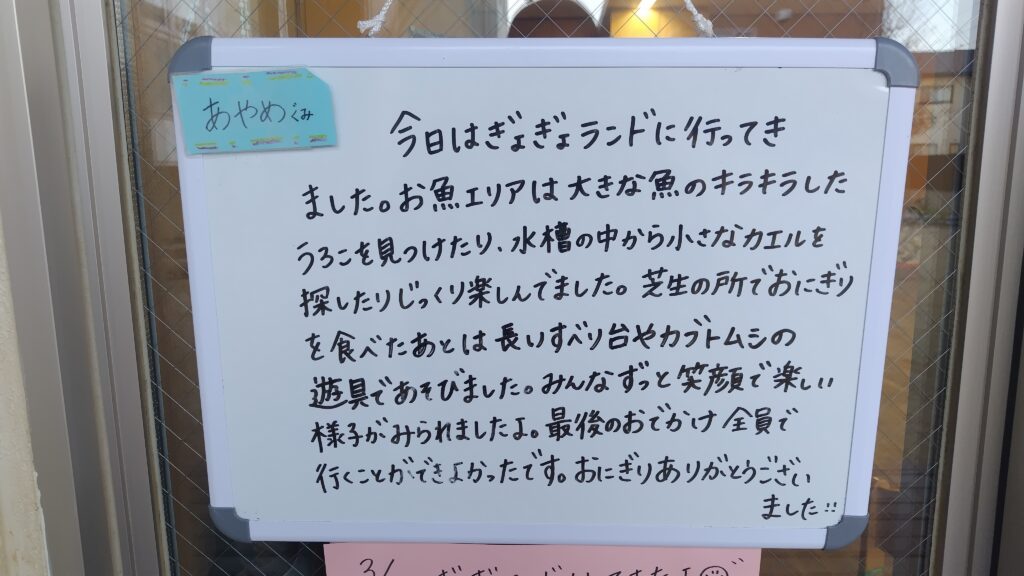 あやめぐみ
今日はぎょぎょランドに行ってき
ました。お魚エリアは大きな魚のキラキラした
うろこを見つけたり、水槽の中から小さなカエルを
探したりじっくり楽しんでました。芝生の所でおにぎり
を食べたあとは長いすべり台やカブトムシの
遊具であそびました。みんなずっと笑顔で楽しい
様子がみられましたよ。最後のおでかけ全員で
行くことができよかったです。おにぎりありがとうござい
ました!!
3/